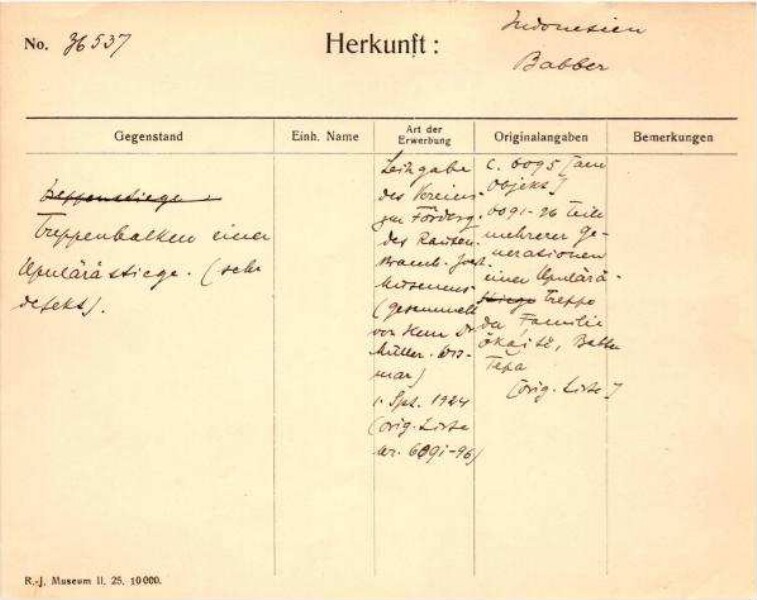 No. 36537
Herkunft:
Indonesien
Babber
Gegenstand
Einh. Name
Art der Erwerbung
Originalangaben
Bemerkungen
Treppenstiege
Treppenbalken einer
Upulärästiege. (sehr
defekt).
Leihgabe
des Vereins
zur Förderg.
des Rauten-
Museums
(gesammelt
von Herrn Dr
Müller-Wis-
mar)
1. Spt. 1924
(orig. Liste
Nr. 6091-96)
C. 6095 [am
Objekt]
6091-96 Teile
mehrerer Ge-
nerationen
einer Upulärä-
stiege Treppe
der Familie
Tepa
[orig. Liste]
R.-J. Museum II. 25. 10000.